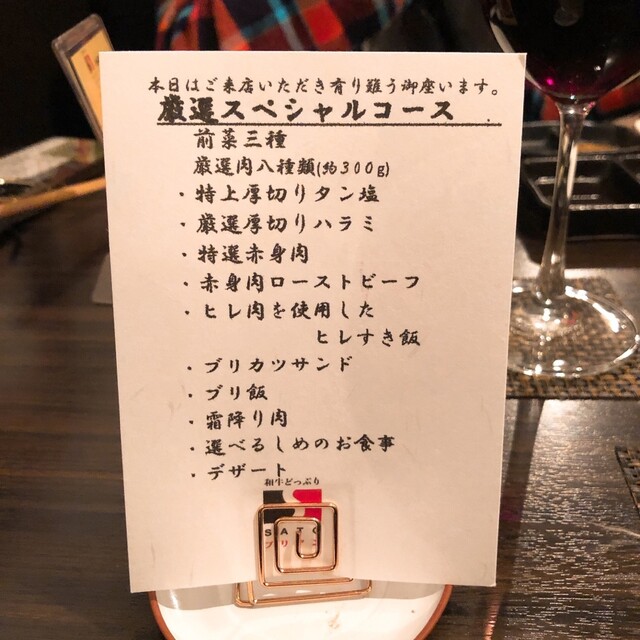 本日はご来店いただき有り難う御座います。
厳選スペシャルコース
前菜三種
厳選肉八種類(約300g)
・特上厚切りタン塩
・厳選厚切りハラミ
・特選赤身肉
・赤身肉ローストビーフ
・ヒレ肉を使用した
ヒレすき飯
・ブリカツサンド
・ブリ飯
・霜降り肉
・選べるしめのお食事
・デザート
和牛どっぷり
SATO